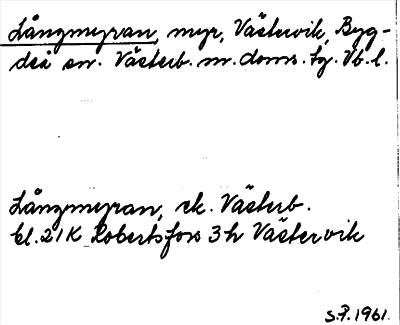 Långmyran, myr, Västervik, Byg-
deå sn. Västerb. n. doms. tg. Vb. l.
Långmyran, ek. Västerb.
bl. 21K Robertsfors 3h Västervik
S.P. 1961.